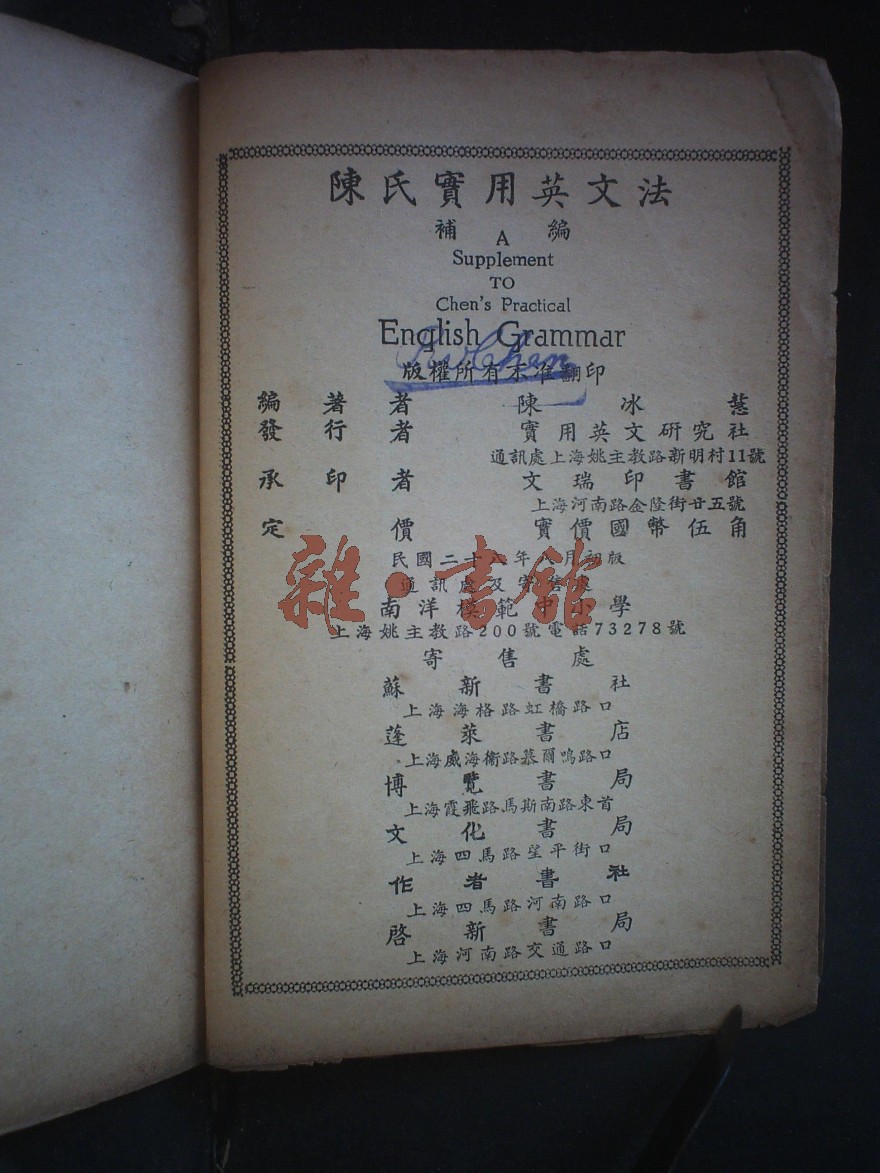 陳氏實用英文法
補編
A
Supplement
TO
Chen's Practical
English Grammar
版權所有不准翻印
編著者 陳冰慧
發行者 實用英文研究社
通訊處上海姚主教路新明村11號
承印者 文瑞印書館
上海河南路金隆街廿五號
定價 實價國幣伍角
民國二十八年八月初版
通訊處及寄售處
南洋模範中小學
上海姚主教路200號電話73278號
寄售處
蘇新書社
上海海格路虹橋路口
蓬萊書店
上海威海衞路慕爾鳴路口
博覽書局
上海霞飛路馬斯南路東首
文化書局
上海四馬路望平街口
作者書社
上海四馬路河南路口
啓新書局
上海河南路交通路口
雜·書館